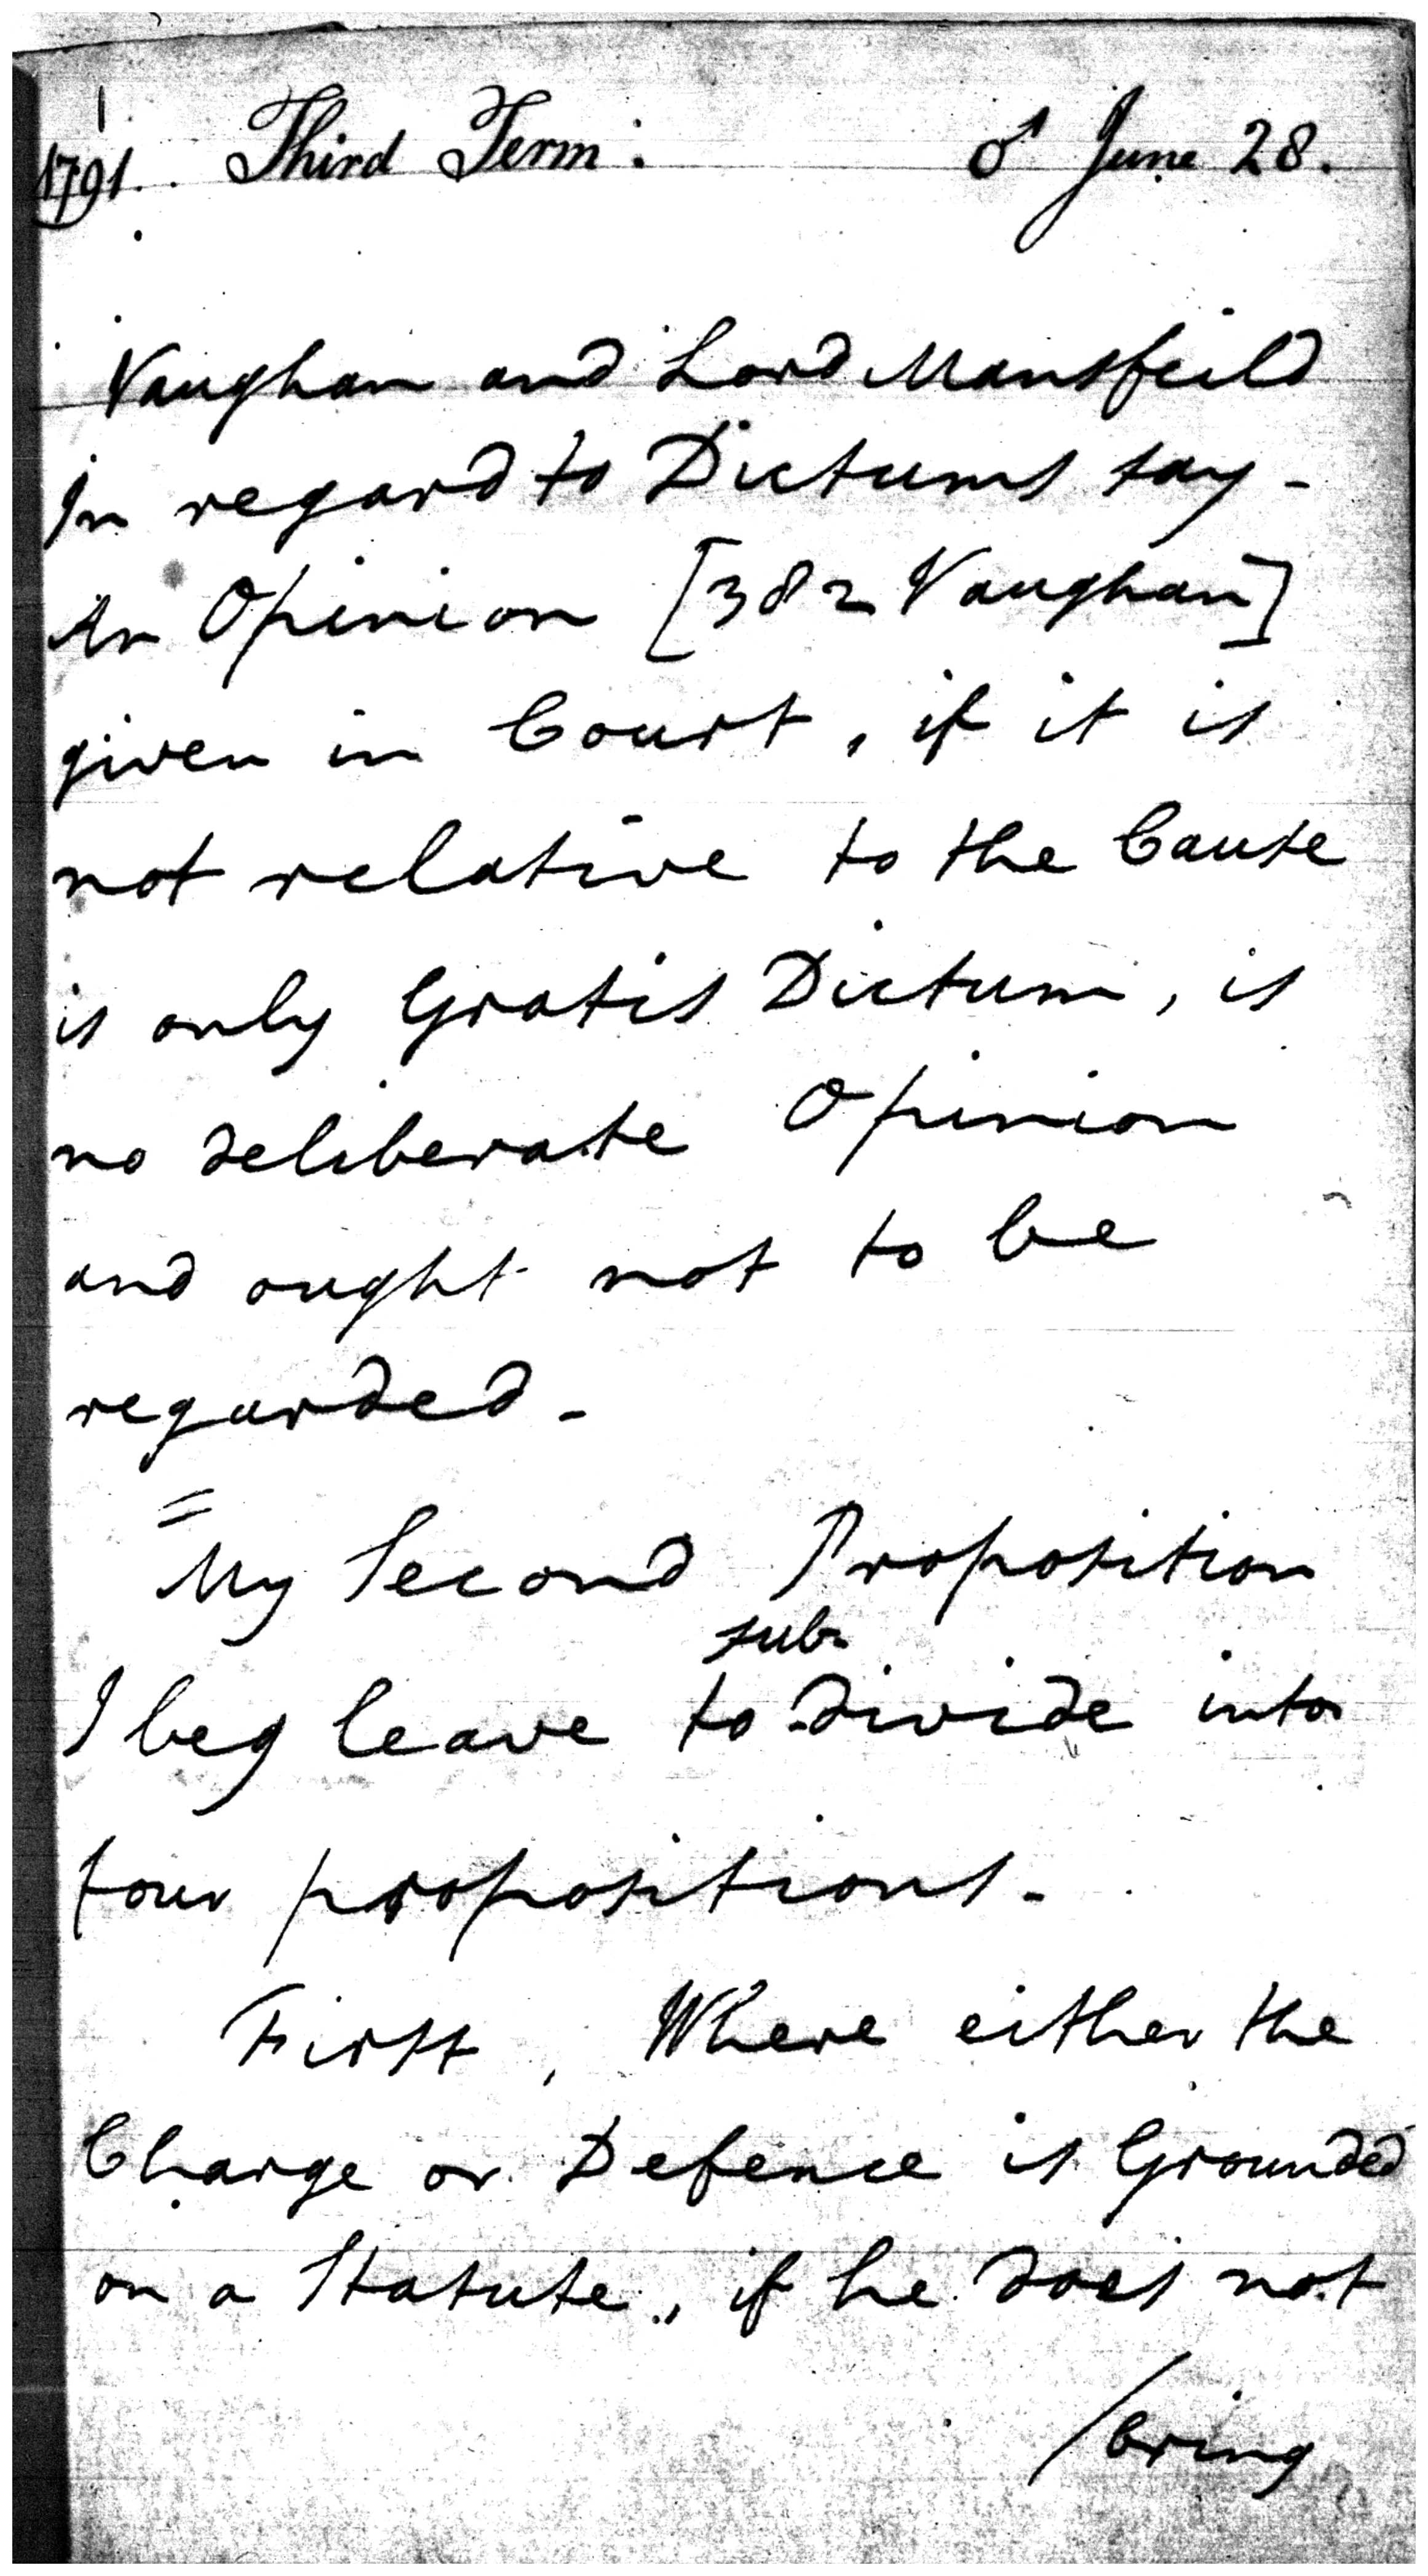 1791. Third Term. ♂ June 28.
Vaughan and Lord Mansfeild
In regard to Dictums say -
An Opinion [382 Vaughan]
given in Court, if it is
not relative to the Cause
is only Gratis Dictum, is
no deliberate Opinion
and ought not to be
regarded -
= My Second Proposition
sub-
I beg leave to divide into
four propositions -
First, Where either the
Charge or Defence is Grounded
on a Statute, if he does not
/bring